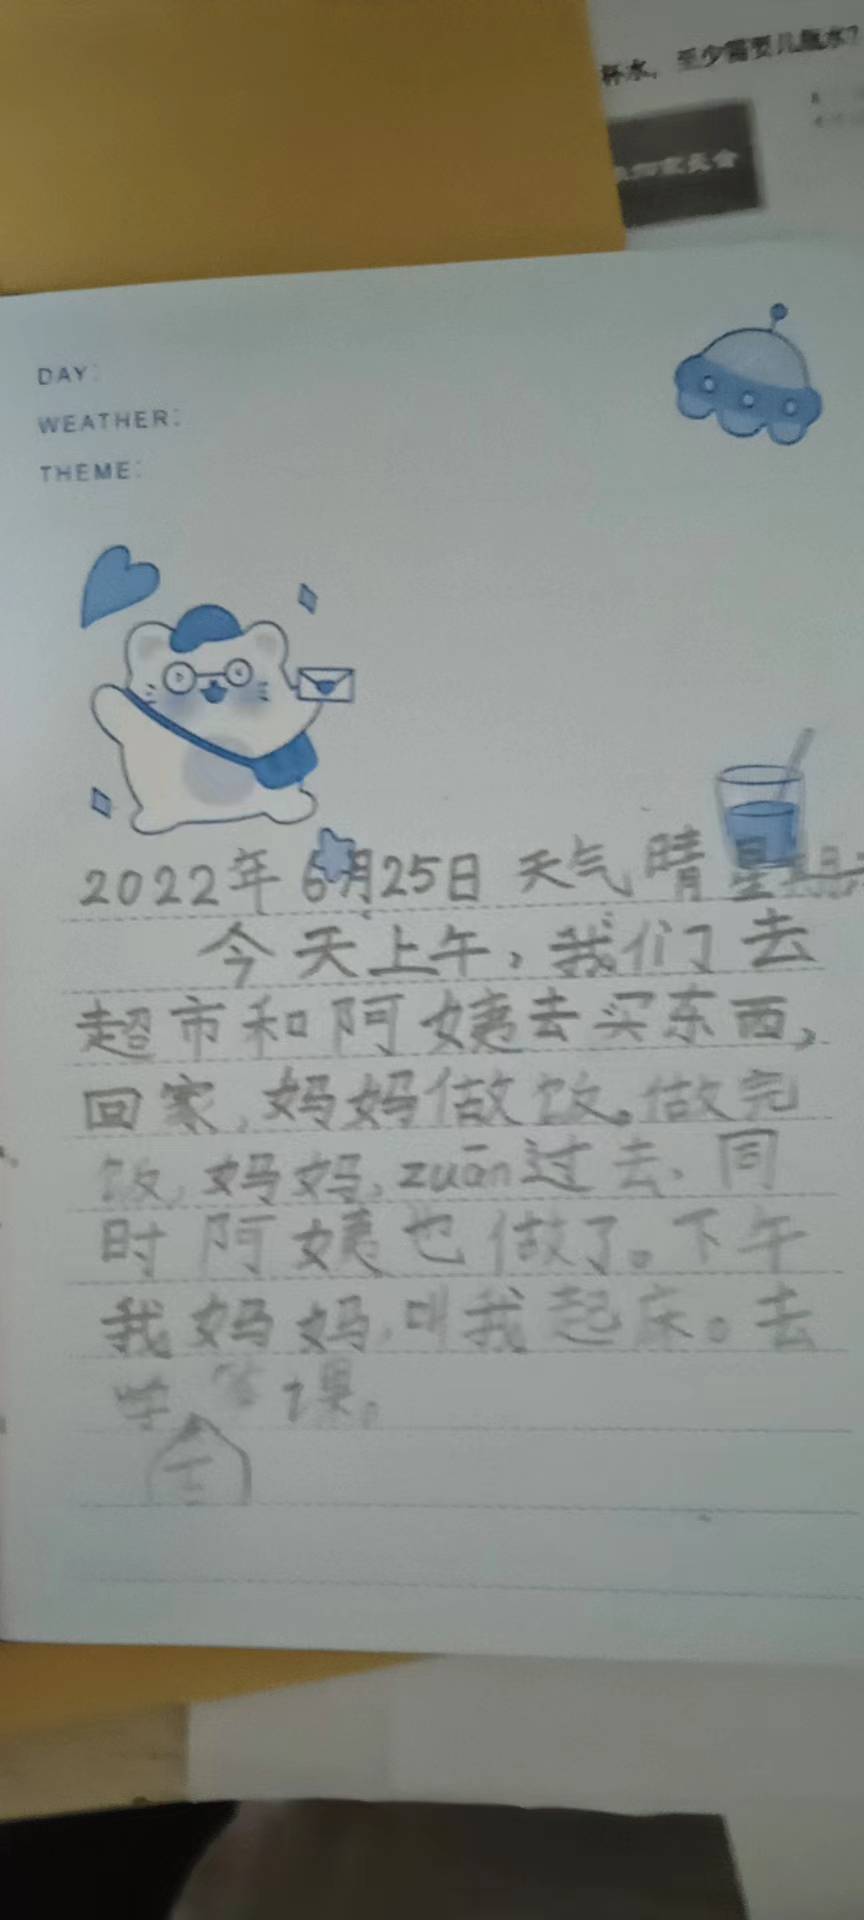 杯水，至少需要几瓶水？
DAY:
WEATHER:
THEME:
2022年6月25日 天气晴 星期六
今天上午，我们去
超市和阿姨去买东西，
回家，妈妈做饭。做完
饭，妈妈，zuān过去、同
时阿姨也做了。下午
我妈妈，叫我起床。去
学 课。